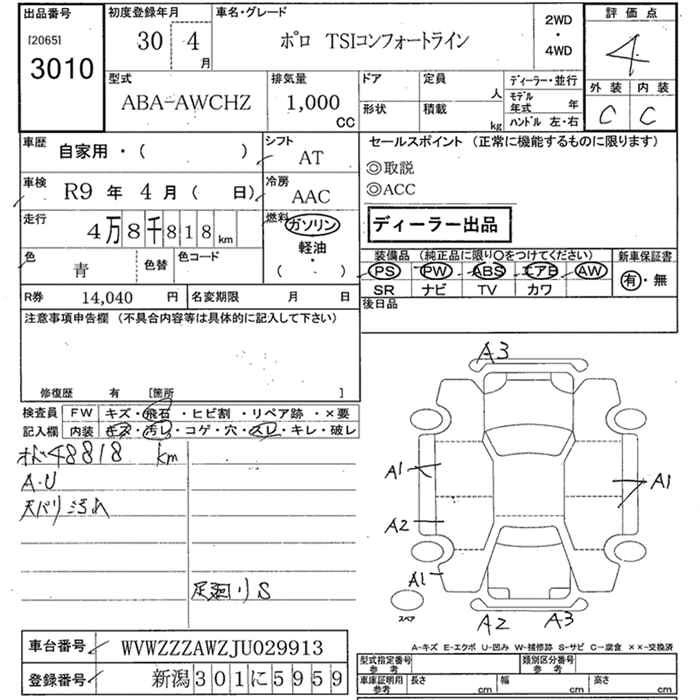 出品番号 [2065] 3010
初度登録年月 30 4月
車名・グレード ポロ TSIコンフォートライン
2WD・4WD
評価点 4
外装 C 内装 C
型式 ABA-AWCHZ
排気量 1,000 CC
ドア 形状
定員 人 積載 kg
ディーラー・並行
モデル年式 年
ハンドル 左・右
車歴 自家用・( )
シフト AT
車検 R9年 4月( 日)
冷房 AAC
走行 4万8千818km
燃料 ガソリン 軽油・( )
色 青 色替 色コード
R券 14,040 円 名変期限 月 日
セールスポイント (正常に機能するものに限ります)
◎取説
◎ACC
ディーラー出品
装備品 (純正品に限り○をつけてください) 新車保証書
PS PW ABS エアB AW 有・無
SR ナビ TV カワ
後日品
注意事項申告欄 (不具合内容等は具体的に記入して下さい)
修復歴 有 [箇所 ]
検査員 FW キズ・飛石・ヒビ割・リペア跡・×要
記入欄 内装 キズ・汚レ・コゲ・穴・スレ・キレ・破レ
オド48818 km
A・U
天バリ汚れ
足廻りS
A3
A1 A1
A2
A1
A2 A3
スペア
A-キズ E-エクボ U-凹み W-補修跡 S-サビ C-腐食 ××-交換済
車台番号 WVWZZZAWZJU029913
登録番号 新潟301に5959
型式指定番号 参考 類別区分番号 参考
車庫証明用 参考 長さ cm 幅 cm 高さ cm